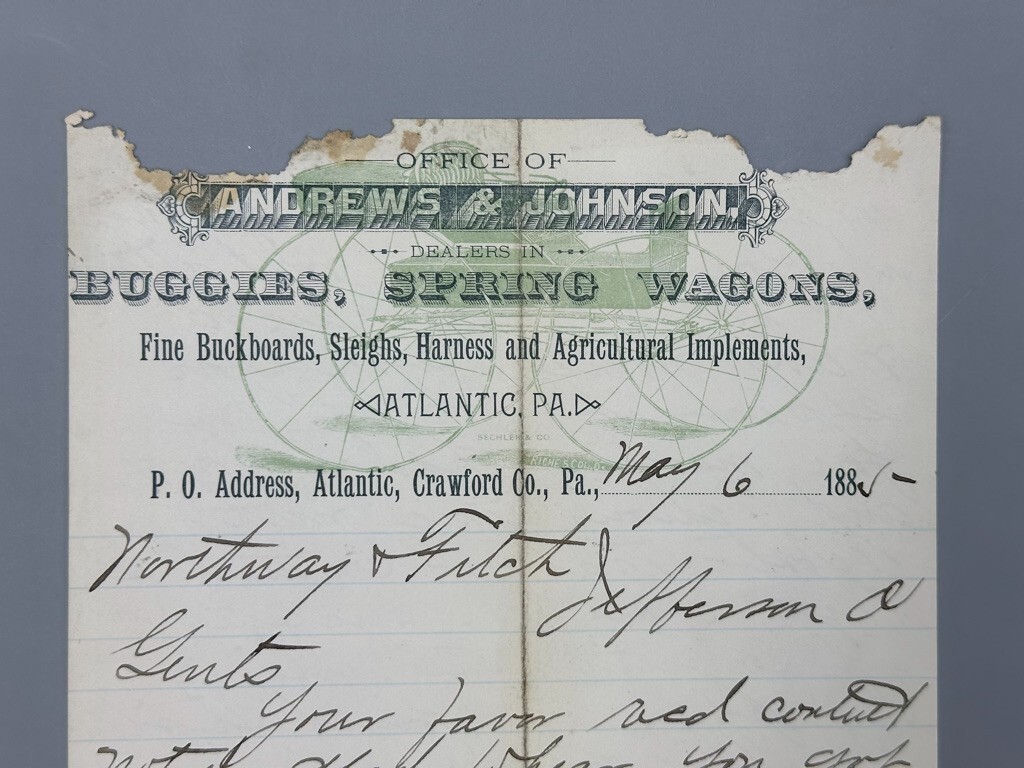 OFFICE OF
ANDREWS & JOHNSON,
DEALERS IN
BUGGIES, SPRING WAGONS,
Fine Buckboards, Sleighs, Harness and Agricultural Implements,
ATLANTIC, PA.
SECHLER & CO.
P. O. Address, Atlantic, Crawford Co., Pa., May 6 1885-
Northway & Fitch
Jefferson O
Gents
Your favor recd
you got